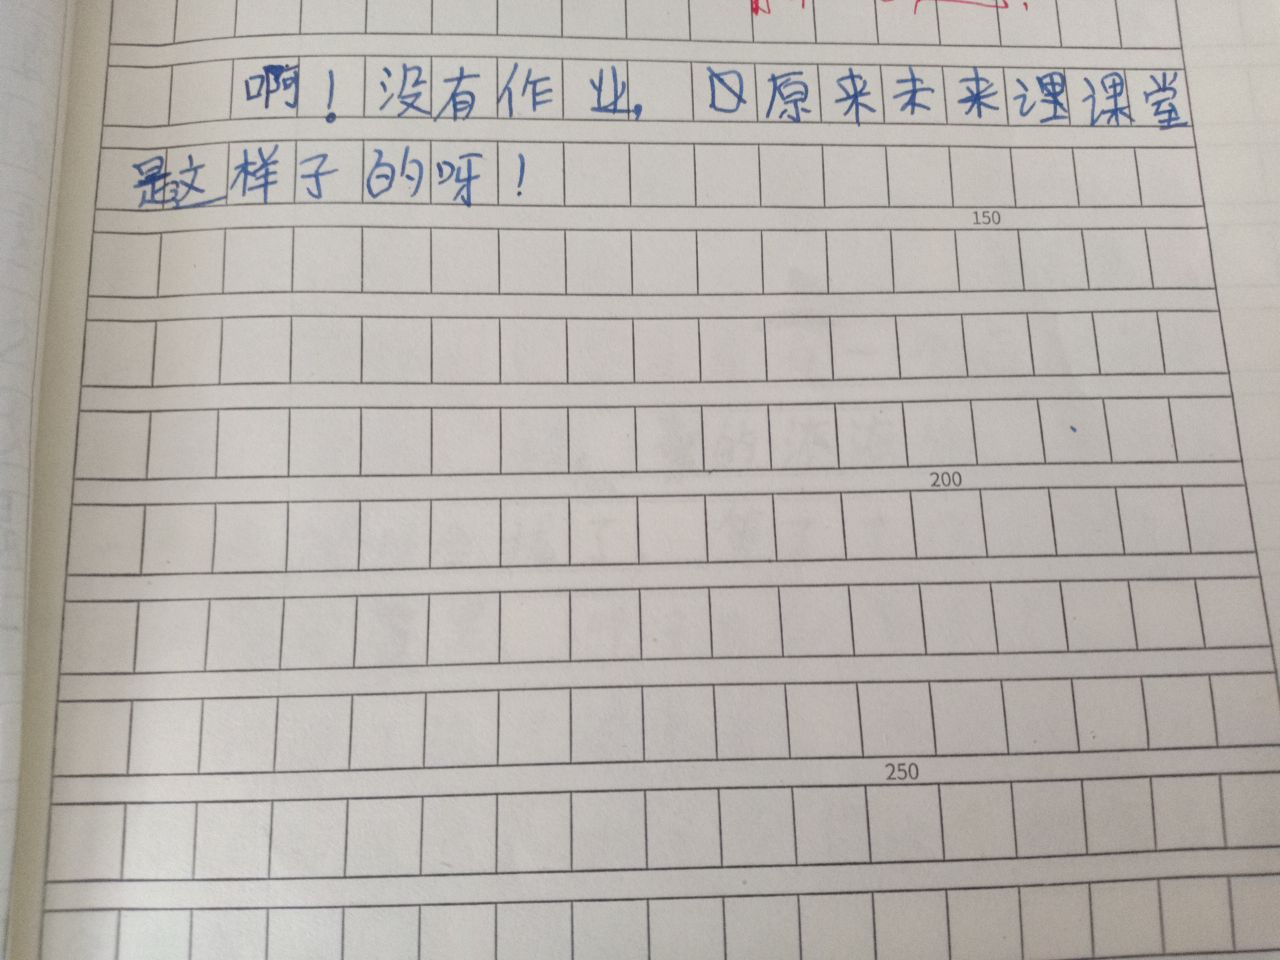 啊！没有作业，原来未来课堂
是这样子的呀！
150
200
250